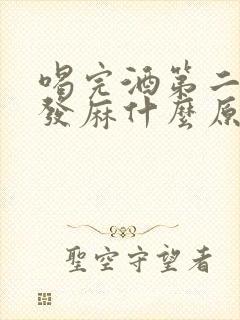 喝完酒第二
發麻什麼原
聖空守望者